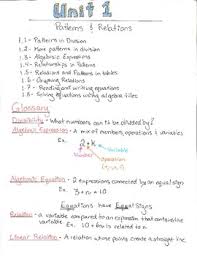 Unit 1
Patterns & Relations
1.1 - Patterns in Division
1.2 - More patterns in division
1.3 - Algebraic Expressions
1.4 - Relationships in Patterns
1.5 - Relations and Patterns in tables
1.6 - Graphing Relations
1.7 - Reading and writing equations
1.8 - Solving equations using algebra tiles
Glossary
Divisibility - What numbers can it be divided by?
Algebraic Expression - A mix of numbers, operations & variables
Ex.
Variable
Number
operation
Algebraic Equation - 2 expressions connected by an equal sign
Ex. 3 + n = 10
Equations have Equal signs
Relation - a variable compared to an expression that contains the variable
Ex. n is related to
Linear Relation - A relation whose points create a straight line